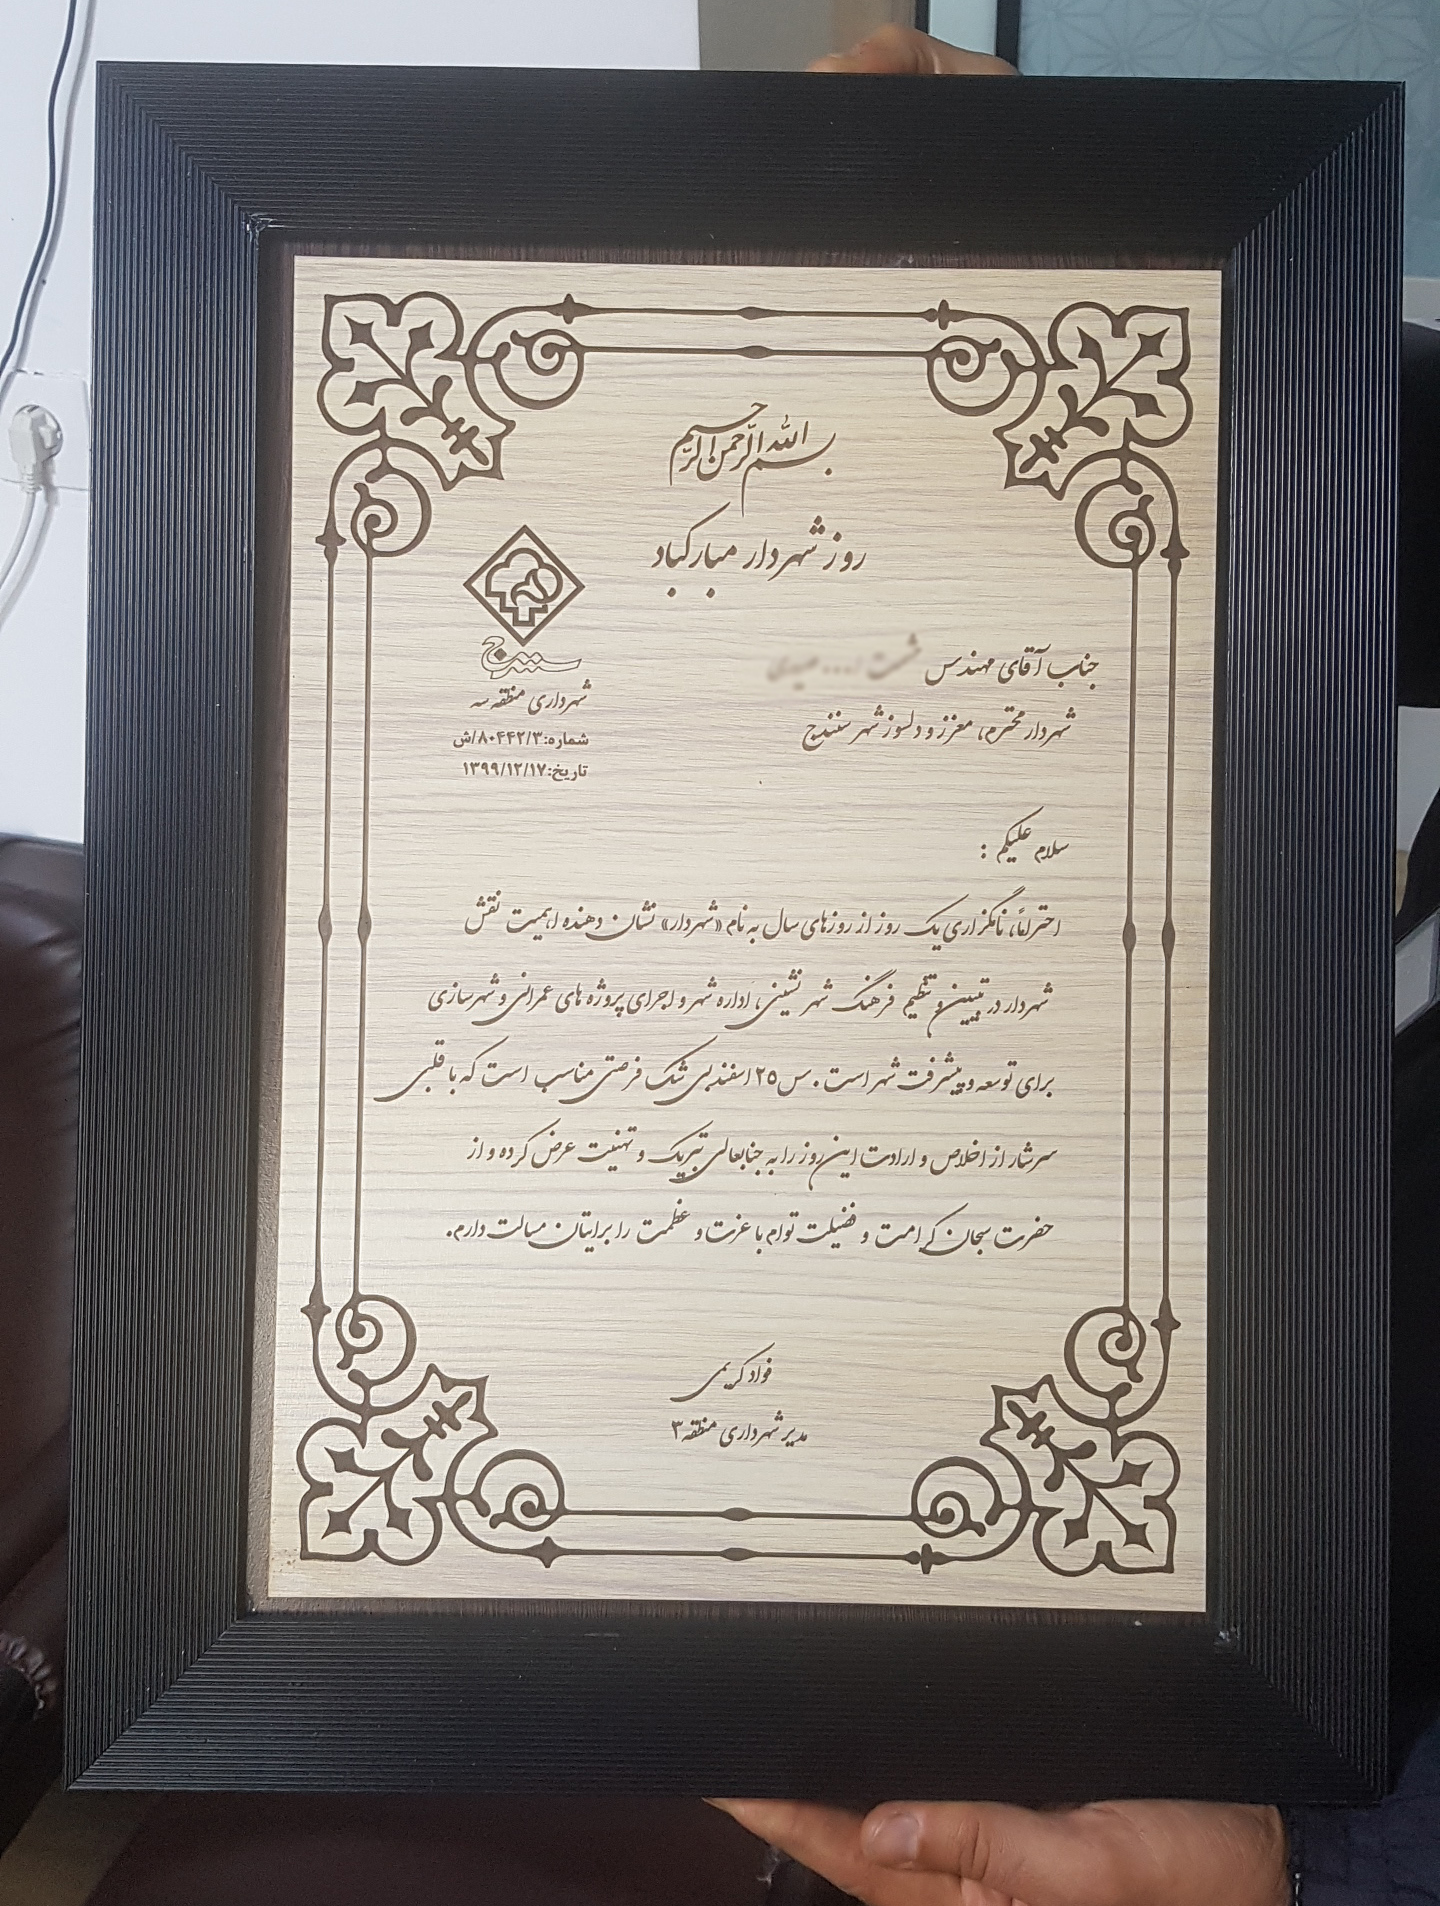 بسم الله الرحمن الرحیم
روز شهردار مبارکباد
جناب آقای مهندس
شهردار محترم، معزز و دلسوز شهر سنندج
سنندج
شهرداری منطقه سه
شماره:۸۰۴۴۲/۳/ش
تاریخ:۱۳۹۹/۱۲/۱۷
سلام علیکم :
احتراماً، نامگزاری یک روز از روزهای سال به نام «شهردار» نشان دهنده اهمیت نقش
شهردار در تبیین و تنظیم فرهنگ شهر نشینی، اداره شهر و اجرای پروژه های عمرانی و شهرسازی
برای توسعه و پیشرفت شهر است. پس ۲۵ اسفند بی شک فرصتی مناسب است که با قلبی
سرشار از اخلاص و ارادت این روز را به جنابعالی تبریک و تهنیت عرض کرده و از
حضرت سبحان کرامت و فضیلت توام با عزت و عظمت را برایتان مسالت دارم.
فواد کریمی
مدیر شهرداری منطقه ۳